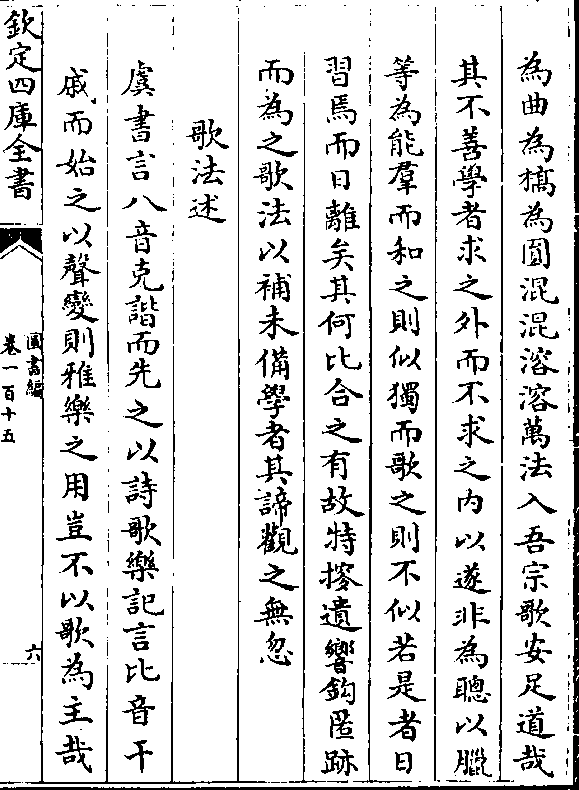 為曲為槁為圓混混溶溶萬法入吾宗歌安足道哉
其不善學者求之外而不求之内以遂非為聰以臘
等為能羣而和之則似獨而歌之則不似若是者日
習焉而日離矣其何比合之有故特摉遺響鈎匿跡
而為之歌法以補未備學者其諦觀之無忽
歌法述
虞書言八音克諧而先之以詩歌樂記言比音干
戚而始之以聲變則雅樂之用豈不以歌為主哉
欽定四庫全書
圖書編
卷一百十五
六